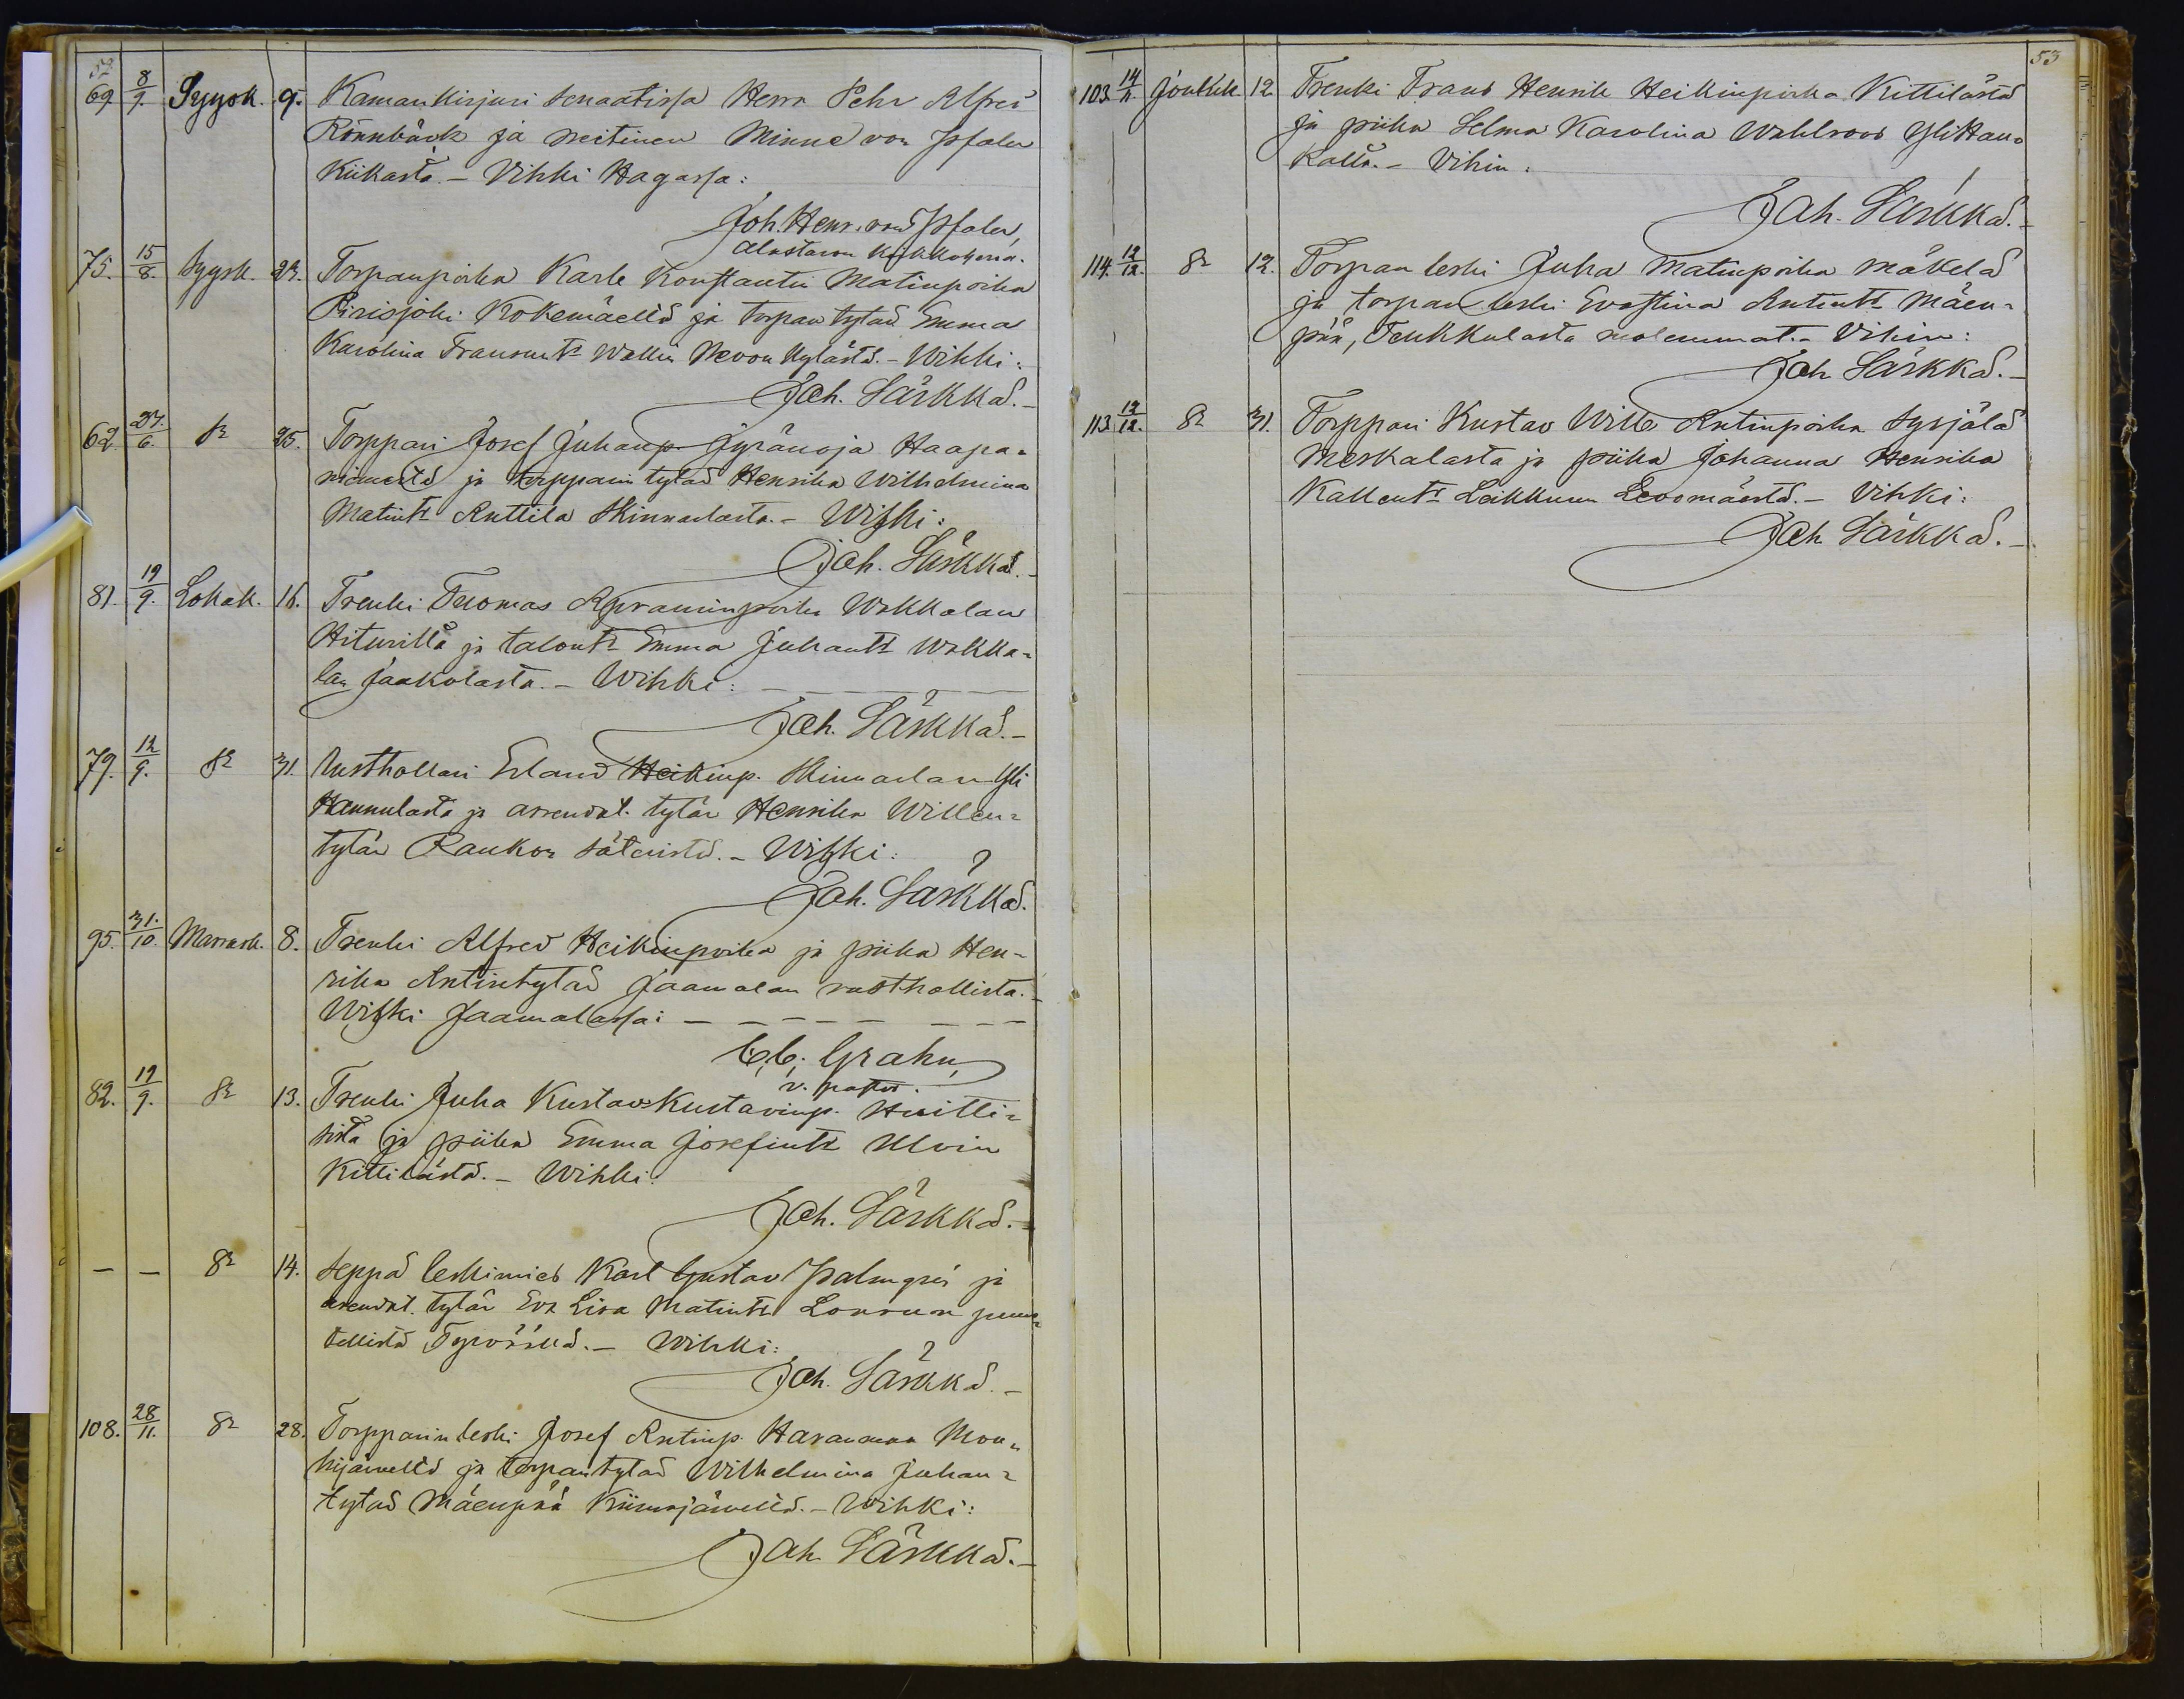 52
69. 8/7. Syysk. 9. Kamarikirjuri senaatissa Herra Pehr Alfred
Rönnbäck ja neitinen Minne von Pfaler
Kiikasta. – Vihki Hagassa:
Joh. Henr. von Pfaler,
Alastaron Kirkkoherra.
75. 15/8. Syysk. 23. Torpanpoika Karle Konstantin Matinpoika
Pirisjoki Kokemäeltä ja torpan tytär Emma
Karolina Fransintr Wallin Nevon kylästä. – Wihki:
Joh. Särkkä. –
62. 27/6. Sr 25. Torppari Josef Juhanp. Jyränoja Haapa-
niemestä ja torpparin tytär Henrika Wilhelmina
Matintr Anttila Skinnarlasta. – Wihki:
Joh. Särkkä. –
81. 19/9. Lokak. 16. Trenki Tuomas Apraminpoika Wakkalan
Hiturilta ja talontr Emma Juhantr Wakka-
lan Jaakolasta. – Wihki:
Joh. Särkkä. –
79. 12/9. Sr 31. Rusthollari Erland Heikinp. Skinnarlan Yli
Hannulasta ja arrendat. tytär Henrika Willen-
tytär Raukon säteristä. – Wihki:
Joh. Särkkä.
95. 31./10. Marrask. 8. Trenki Alfred Heikinpoika ja piika Hen-
rika Antintytär Jaamalan rusthollista. –
Wihki Jaamalassa: –
C. C. Grahn,
v. pastor.
82. 19/9. Sr 13. Trenki Juha Kustav Kustavinp. Huitti-
sista ja piika Emma Josefintr Ulvin
Kittilästä. – Wihki:
Joh. Särkkä. –
– – Sr 14. Seppä leskimies Karl Gustav Palmgrén ja
arendat. tytär Eva Lisa Matintr
tellistä Tyrväällä. – Wihki:
Joh. Särkkä. –
108. 28/11. Sr 28. Torpparin leski Josef Antinp. Havanmaa Mou-
hijärveltä ja torpantytär Wilhelmina Juhan-
tytär Mäenpää Kiimajärveltä. – Wihki:
Joh. Särkkä. –
53
103. 14/11. Jouluk. 12. Trenki Frans Henrik Heikinpoika Kittilästä
ja piika Selma Karolina Wahlroos YliHau-
kalta. – Vihin:
Joh. Särkkä. –
114. 12/12. Sr 12. Torpan leski Juha Matinpoika Mäkelä
ja torpan leski Evastina Antintr Mäen-
pää, Tenkkulasta molemmat. – Vihin:
Joh Särkkä. –
113. 12/12. Sr 31. Torppari Kustav Wille Antinpoika Syrjälä
Meskalasta ja piika Johanna Henrika
Kallentr Leikkuun Levomäestä. – Vihki:
Joh Särkkä. –